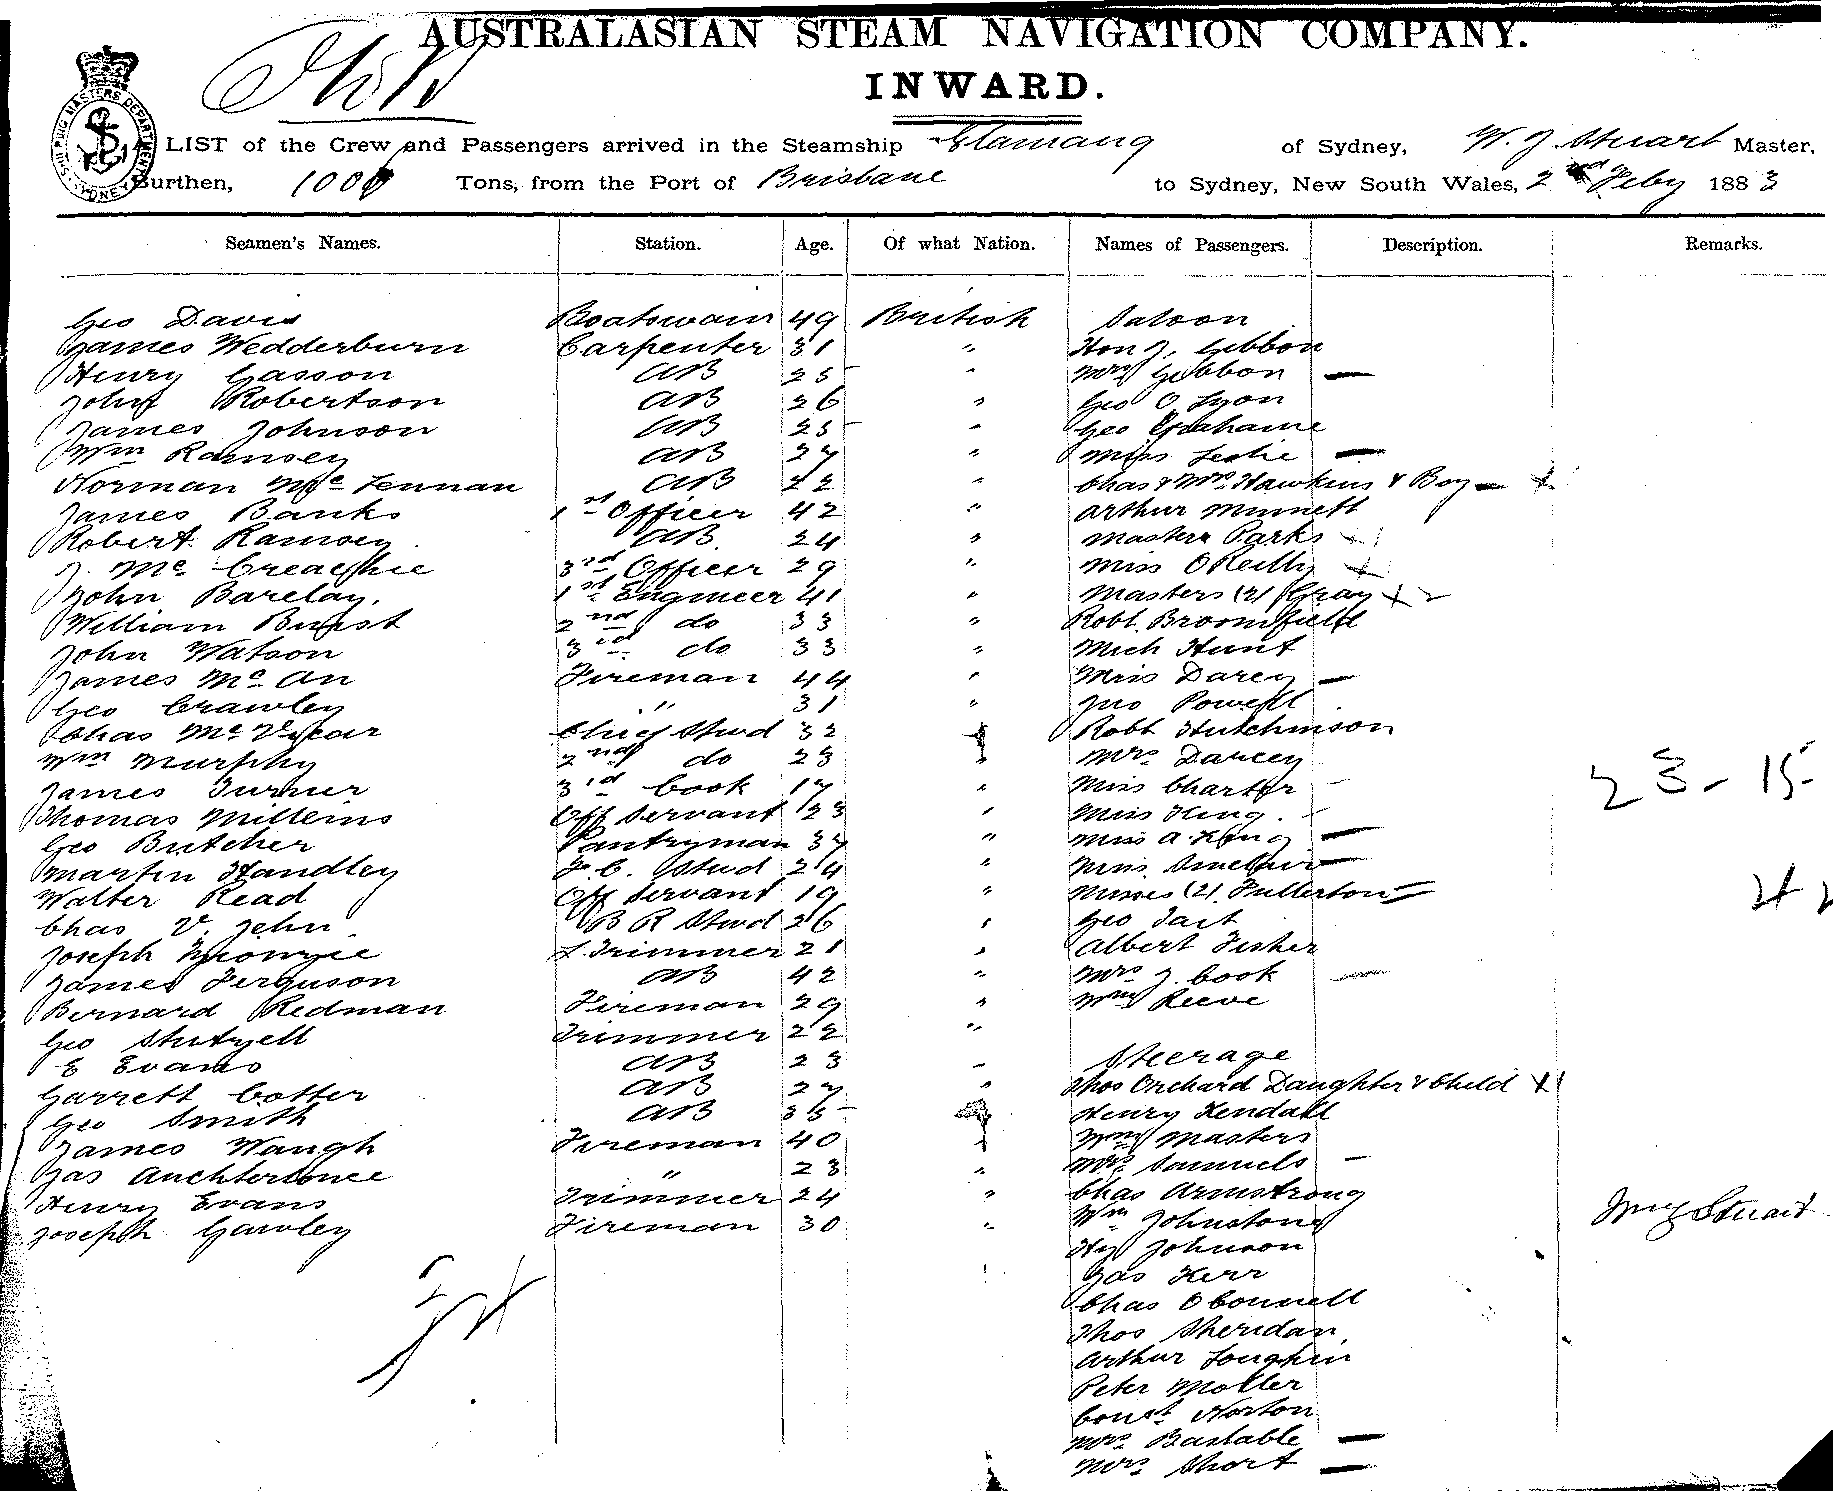 AUSTRALASIAN STEAM NAVIGATION COMPANY.
INWARD.
A LIST of the Crew and Passengers arrived in the Steamship of Sydney, W. J. Stuart Master,
Burthen, 1000 Tons, from the Port of Brisbane to Sydney, New South Wales, 2nd Feby 1883
Seamen's Names. Station. Age. Of what Nation. Names of Passengers. Description. Remarks.
Geo Davis Boatswain 49 British Saloon
James Wedderburn Carpenter 31 " Hon J. Gibbon
Henry Gasson AB 25 " Mrs Gibbon —
John Robertson AB 26 " Geo O Lyon
James Johnson AB 25 " Geo Grahame
Wm Ramsey AB 27 " Miss Leslie —
Norman Mc Lennan AB 22 " Chas & Mrs Hawkins & Boy —
James Banks 1st Officer 42 " Arthur Minnett
Robert Ramsey AB. 24 " Masters Parks
J. Mc 3rd Officer 29 " Miss O Reilly
John Barclay. 1st Engineer 41 " Masters (2) Gray
William Burst 2nd do 33 " Robt. Broomfield
John Watson 3rd do 33 " Mich Hunt
James Mc An Fireman 44 " Miss Darcy —
Geo Crawley " 31 " Jno Powell
Chas Mc Vicar Chief Stwd 32 " Robt Hutchinson
Wm Murphy 2nd do 23 " Mrs Darcey
James Turner 3rd Cook 17 " Miss Charter
23 - 15
Thomas Millems Off Servant 23 " Miss King.
Geo Butcher Pantryman 37 " Miss A. King —
Martin Handley F. C. Stwd 24 " Miss Sinclair —
Walter Read Off Servant 19 " Misses (2) Fullerton
42
Chas V. Jehn B R Stwd 26 " Geo Tait
Joseph Trimmer 21 " Albert Fisher
James Ferguson AB 42 " Mrs J. Cook —
Bernard Redman Fireman 29 " Wm Reeve
Geo Trimmer 22 "
E Evans AB 23 " Steerage
Garrett Cotter AB 27 " Thos Orchard Daughter & Child
Geo Smith AB 35 " Henry Kendall
James Waugh Fireman 40 " Wm Masters
Jas Auchterlonee " 23 " Mrs Samuels —
Henry Evans Trimmer 24 " Chas Armstrong
Joseph Gawley Fireman 30 " Wm Johnstone
W J Stuart
Hy Johnson
Jas Kerr
Chas O Connell
Thos Sheridan
Arthur Loughlin
Peter Moller
Const Norton
Mrs Bastable —
Mrs Short —